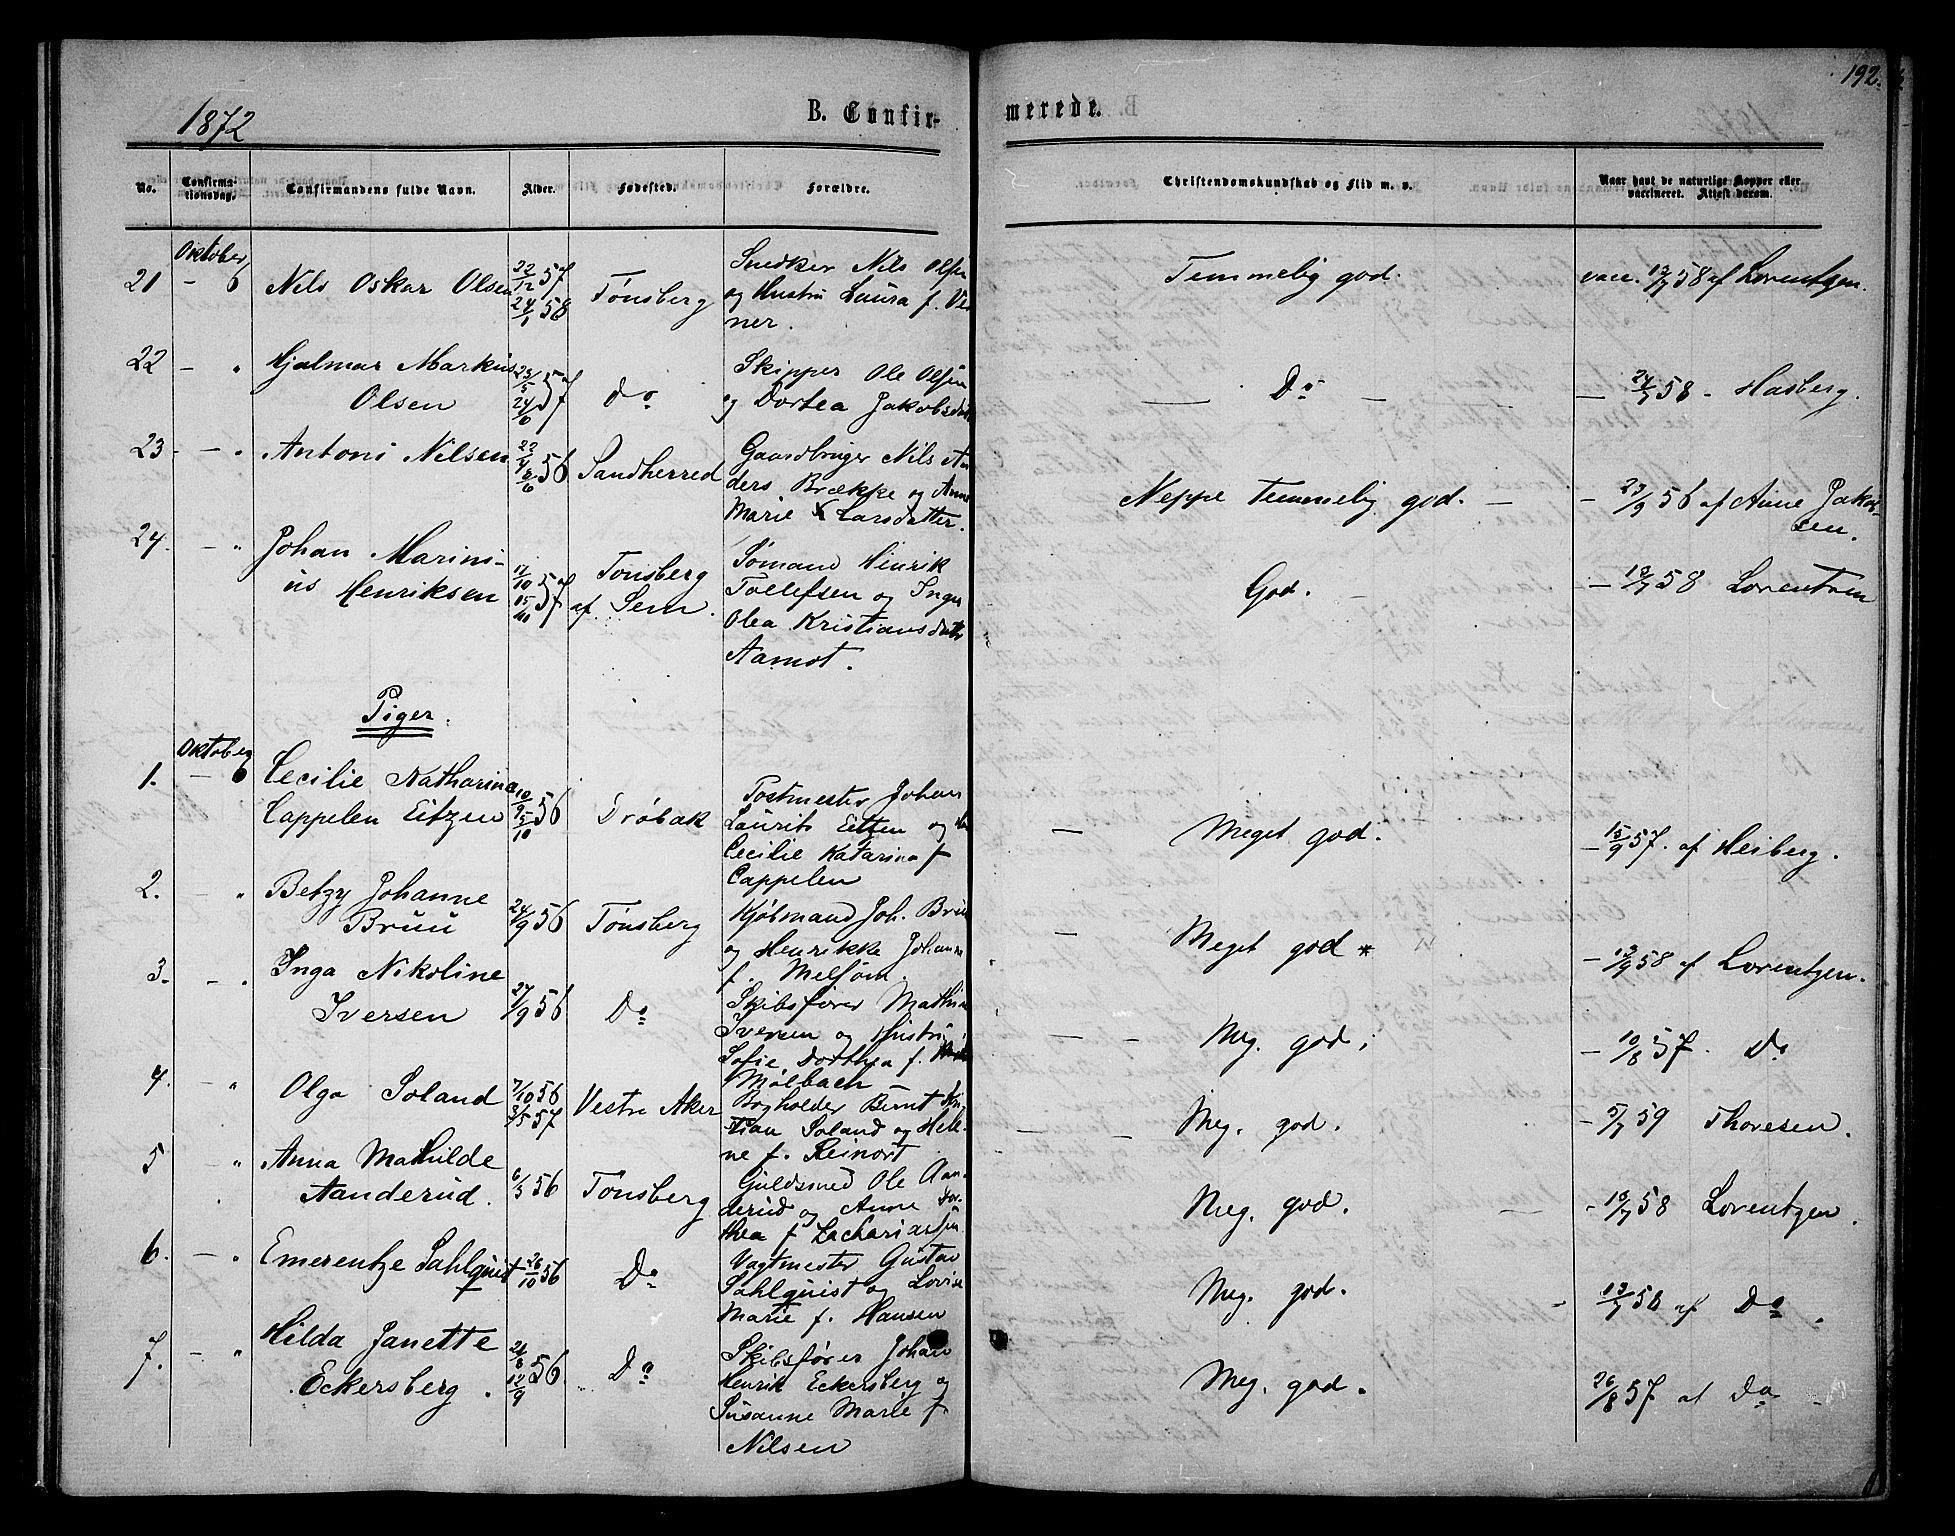 192.
1872
B. Confirmerede.
No. Confirmationsdag. Confirmandens fulde Navn. Alder. Fødested. Forældre. Christendomskundskab og Flid m. v. Naar havt de naturlige Kopper eller vaccineret. Attest derom.
Oktober
21 - 6 Nils Oskar Olsen 22/12 57 24/1 58 Tønsberg
Snedker Nils Olsen
og Hustru Laura f. Ve
ner.
Temmelig god. vacc. 13/7 58 af Lorentzen.
22 - " Hjalmar Markus
Olsen
23/5 57 24/6 57 Do
Skipper Ole Olsen
og Dortea Jakobsdat
— Do — — 24/7 58 - Hasberg.
23 - " Antoni Nilsen 22/4 56 8/6 Sandherred
Gaardbruger Nils An
ders Brække og Anne
Marie Larsdatter.
Neppe temmelig god. — - 23/9 56 af Anne Jakob-
sen.
24. - " Johan Marini-
us Henriksen
17/10 57 15/11 57
Tønsberg
af Sem.
Sømand Henrik
Tollefsen og Inger
Olea Kristiansdatter
Aamot.
God. - 13/7 58 Lorentzen
Piger.
Oktober
1. - 6 Cecilie Katharina
Cappelen Eitzen
10/9 56 5/10 Drøbak
Postmester Johan
Laurits Eitzen og
Cecilie Katarina f
Cappelen
— Meget god. - 15/9 57. af Heiberg.
2. - " Betzy Johanne
Bruu
24/9 56 Tønsberg
Kjøbmand Joh. Bruu
og Henrikke Johanne
f. Melsom.
— Meget god * - 13/7 58 af Lorentzen.
3. - " Inga Nikoline
Iversen
27/9 56 Do
Skibsfører Mathias
Iversen og Hustru
Sofie Dorthea f.
Mølbach
- - Meg. god; - 10/8 57. Do
4. - " Olga Soland 7/10 56 3/5 57 Vestre Aker
Bogholder Bernt Kri
stian Soland og Hele-
ne f. Reinort
- - Meg. god. - 5/7 59 Thoresen.
5 - " Anna Mathilde
Aanderud.
6/3 56 Tønsberg
Guldsmed Ole Aan-
derud og Anne Dor-
thea f Zachariassen
Meg. god. — - 13/7 58 Lorentzen.
6. - " Emerentze Sahlquist 26/10 56 Do
Vagtmester Gustav
Sahlquist og Lovise
Marie f. Hansen
Meg. god. - 13/7 58 af Do.
7. - " Hilda Janette
Eckersberg.
21/8 56 12/9 Do
Skibsfører Johan
Henrik Eckersberg og
Susanne Marie f
Nilsen
Meg. god. 26/8 57 af Do